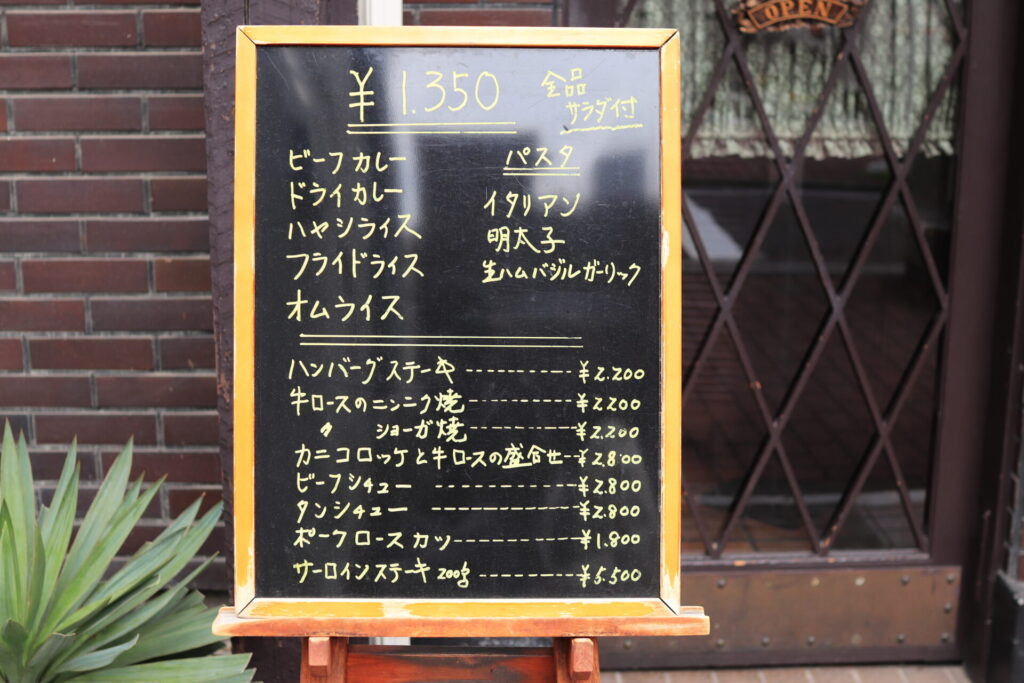 OPEN
¥1.350
全品
サラダ付
ビーフカレー
ドライカレー
ハヤシライス
フライドライス
オムライス
パスタ
イタリアン
明太子
生ハムバジルガーリック
ハンバーグステーキ----------¥2.200
牛ロースのニンニク焼----------¥2200
〃 ショーガ焼----------¥2.200
カニコロッケと牛ロースの盛合せ--¥2.800
ビーフシチュー ----------¥2.800
タンシチュー ----------¥2.800
ポークロースカツ----------¥1.800
サーロインステーキ200g----------¥5.500